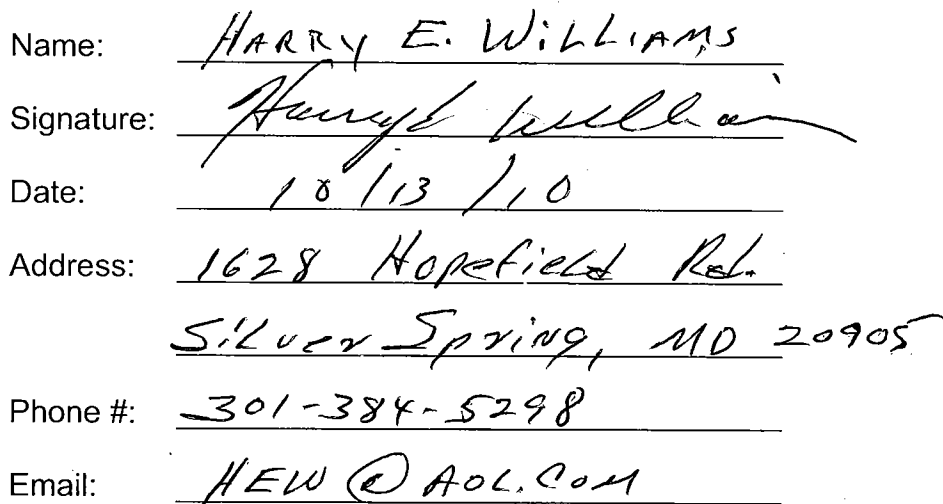 Name: HARRY E. WILLIAMS
Signature: Harry E Williams
Date: 10/13/10
Address: 1628 Hopefield Rd.
Silver Spring, MD 20905
Phone #: 301-384-5298
Email: HEW@AOL.COM